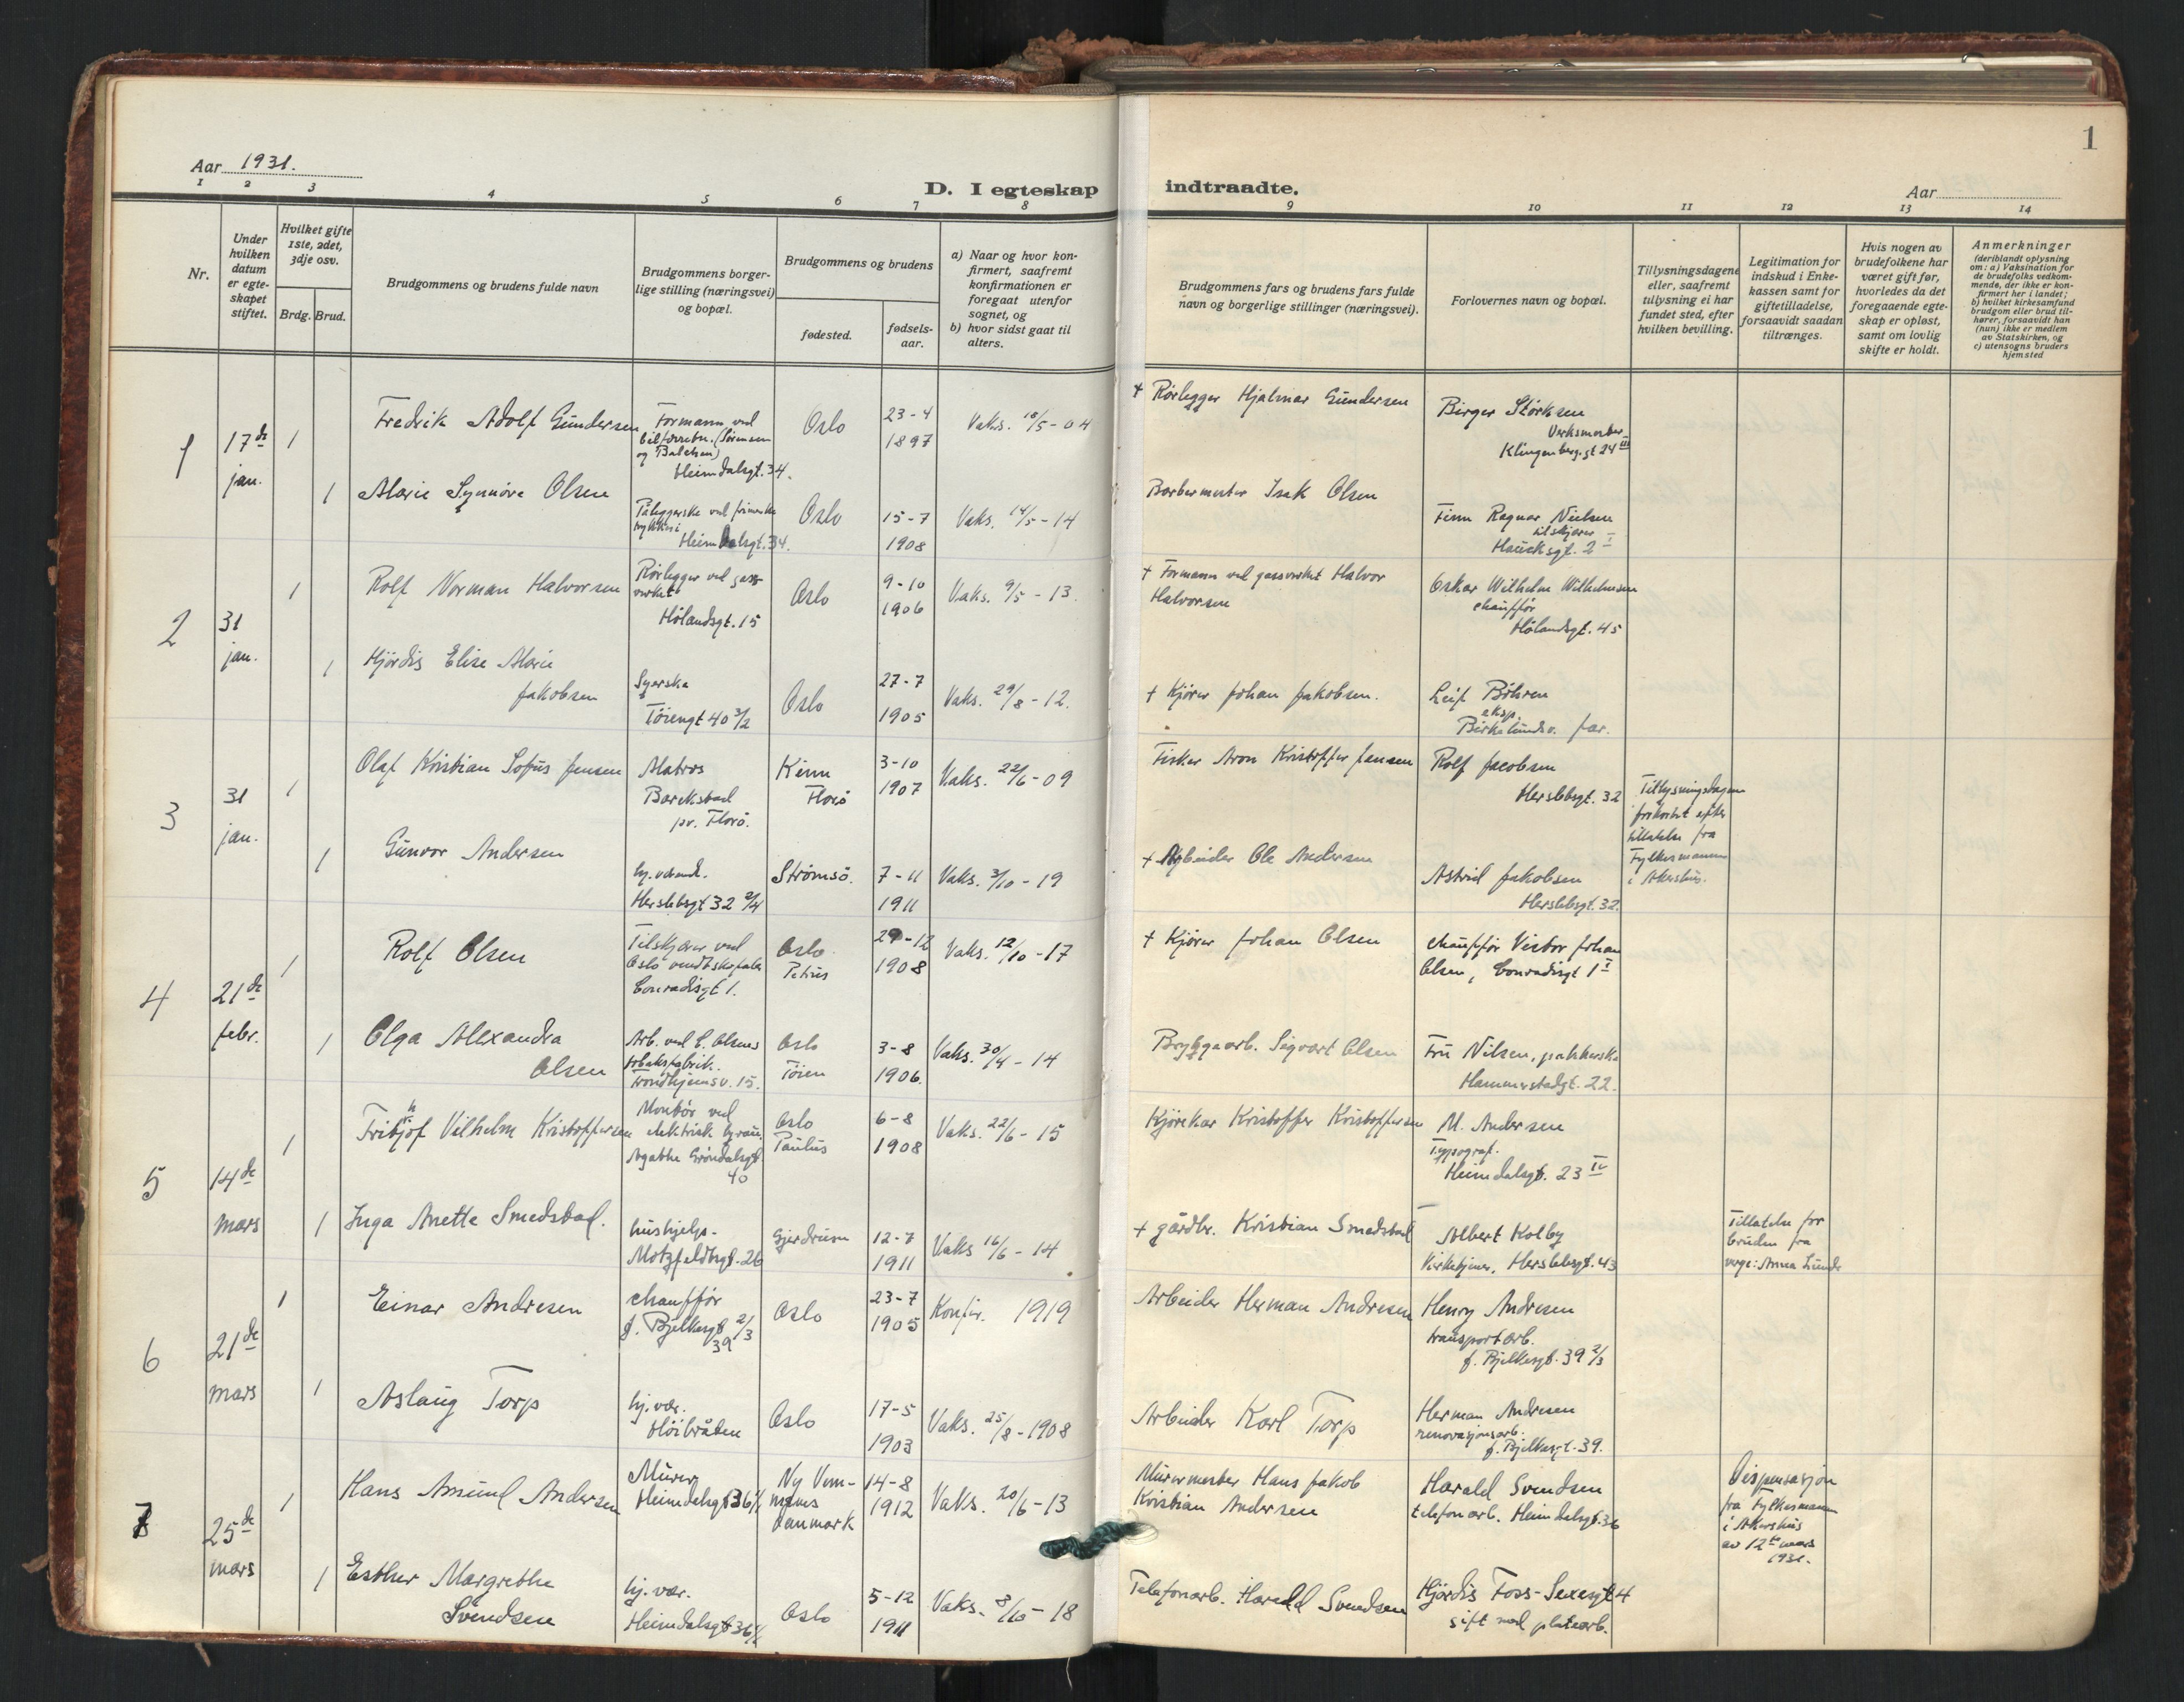 Aar 1931.
D. I egteskap indtraadte.
Aar
1
1 2 3 4 5 6 7 8 9 10 11 12 13 14
Nr.
Under hvilken datum er egte-skapet stiftet.
Hvilket gifte 1ste, 2det, 3dje osv.
Brdg. Brud.
Brudgommens og brudens fulde navn
Brudgommens borger-lige stilling (næringsvei) og bopæl.
Brudgommens og brudens
fødested.
fødsels-aar.
a) Naar og hvor kon-firmert, saafremt konfirmationen er foregaat utenfor sognet, og
b) hvor sidst gaat til alters.
Brudgommens fars og brudens fars fulde navn og borgerlige stillinger (næringsvei).
Forlovernes navn og bopæl.
Tillysningsdagene eller, saafremt tillysning ei har fundet sted, efter hvilken bevilling.
Legitimation for indskud i Enke-kassen samt for giftetilladelse, forsaavidt saadan tiltrænges.
Hvis nogen av brudefolkene har været gift før, hvorledes da det foregaaende egte-skap er opløst, samt om lovlig skifte er holdt.
Anmerkninger
(deriblandt oplysning om: a) Vaksination for de brudefolks vedkom-mende, der ikke er kon-firmert her i landet;
b) hvilket kirkesamfund brudgom eller brud til-hører, forsaavidt han (hun) ikke er medlem av Statskirken, og
c) utensogns bruders hjemsted
1
17de jan.
1
Fredrik Adolf Gundersen
Formann ved
bilforretn. (Sørensen
og Balchen)
Heimdalsgt. 34.
Oslo
23-4
1897
Vaks. 18/5-04
+ Rørlegger Hjalmar Gundersen
Birger Størksen
Verksmester
Klingenberg. gt 24 III
1
Marie Synnøve Olsen
Påleggerske ved
Heimdalsgt. 34.
Oslo
15-7
1908
Vaks. 14/5-14
Barbermester Isak Olsen
Finn Ragnar Nielsen
tilskjærer
Hausksgt. 2 I
2
31 jan.
1
Rolf Norman Halvorsen
Rørlegger ved gass-
verket
Hølandsgt. 15
Oslo
9-10
1906
Vaks. 9/5-13.
+ Formann ved gassverket Halvor
Halvorsen
Oskar Wilhelm Wilhelmsen
chauffør
Hølandsgt. 45
1
Hjørdis Elise Marie
Jakobsen
Syerske
Tøiengt 40 3/2
Oslo
27-7
1905
Vaks. 29/8-12.
+ Kjører Johan Jakobsen.
Leif Böhren
eksp.
Birkelundsv. Jar.
3
31 jan.
1
Olaf Kristian Sofus Jensen
Matros
Barekstad
pr. Florø.
Kinn
Florø
3-10
1907
Vaks. 22/6-09
Fisker Aron Kristoffer Jensen
Rolf Jacobsen
Herslebsgt. 32
Tillysningsdagene
forkortet efter
tillatelse fra
Fylkesmannen
i Akershus.
1
Gunvor Andersen
hj. værend.
Herslebsgt 32 2/4
Strømsö.
7-11
1911
Vaks. 3/10-19
+ Arbeider Ole Andersen
Astrid Jakobsen
Herslebsgt. 32.
4
21de febr.
1
Rolf Olsen
Tilskjærer ved
Oslo
Conradisgt 1.
Oslo
Petrus
29-12
1908
Vaks. 12/10-17
+ Kjører Johan Olsen
chauffør Victor Johan
Olsen, Conradisgt 1 I
1
Olga Alexandra
Olsen
Arb. ved C. Olsens
tobaksfabrik.
Trondhjemsv. 15.
Oslo
Tøien
3-8
1906.
Vaks. 30/4-14
Bryggearb. Sigvart Olsen
Fru Nilsen, pakkerske
Hammerstadgt. 22.
5
14de mars
1
Fritjhof Vilhelm Kristoffersen
Montør ved
elektrisk byrau.
Agathe Grøndalsgt.
40
Oslo
Paulus
6-8
1908
Vaks. 22/6-15
Kjørekar Kristoffer Kristoffersen
M. Andersen
Typograf.
Heimdalsgt. 23 IV
1
Inga Anette Smedstad.
hushjelp.
Motzfeldtsgt. 26
Gjerdrum
12-7
1911
Vaks 16/6-14
+ gårdbr. Kristian Smedstad
Albert Kolby
Kirketjener, Herslebsgt. 43
Tillatelse for
bruden fra
verge: Anna Lunde
6
21de mars
1
Einar Andresen
chauffør
J. Bjelkesgt 2/3
39
Oslo
23-7
1905
Konfir. 1919
Arbeider Herman Andresen
Henry Andresen
transportarb.
J. Bjelkesgt. 39 2/3
1
Aslaug Torp
hj. vær.
Høibråten
Oslo
17-5
1903
Vaks. 25/8-1908
Arbeider Karl Torp
Herman Andresen
renovasjonsarb.
J. Bjelkesgt. 39.
7
25de mars
1
Hans Amund Andersen
Murer
Heimdalsgt 36
Danmark
14-8
1912
Vaks. 20/6-13
Murermester Hans Jakob
Kristian Andersen
Harald Svendsen
telefonarb. Heimdalsgt. 36
Dispensasjon
fra Fylkesmannen
i Akershus
av 12te mars
1931.
1
Esther Margrethe
Svendsen
hj. vær.
Heimdalsgt 36
Oslo
5-12
1911
Vaks. 8/10-18
Telefonarb. Harald Svendsen
Hjørdis Foss - Sexesgt 4
gift med platearb.